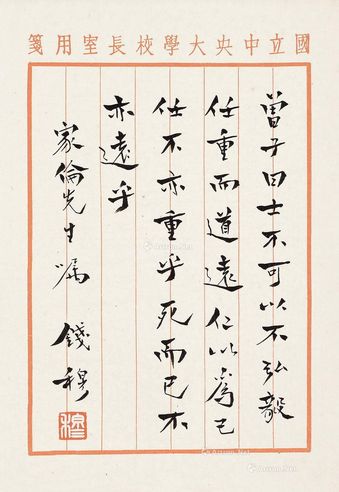 國立中央大學校長室用箋
曾子曰士不可以不弘毅
任重而道遠仁以爲己
任不亦重乎死而已不
亦遠乎
家倫先生囑 錢穆
穆